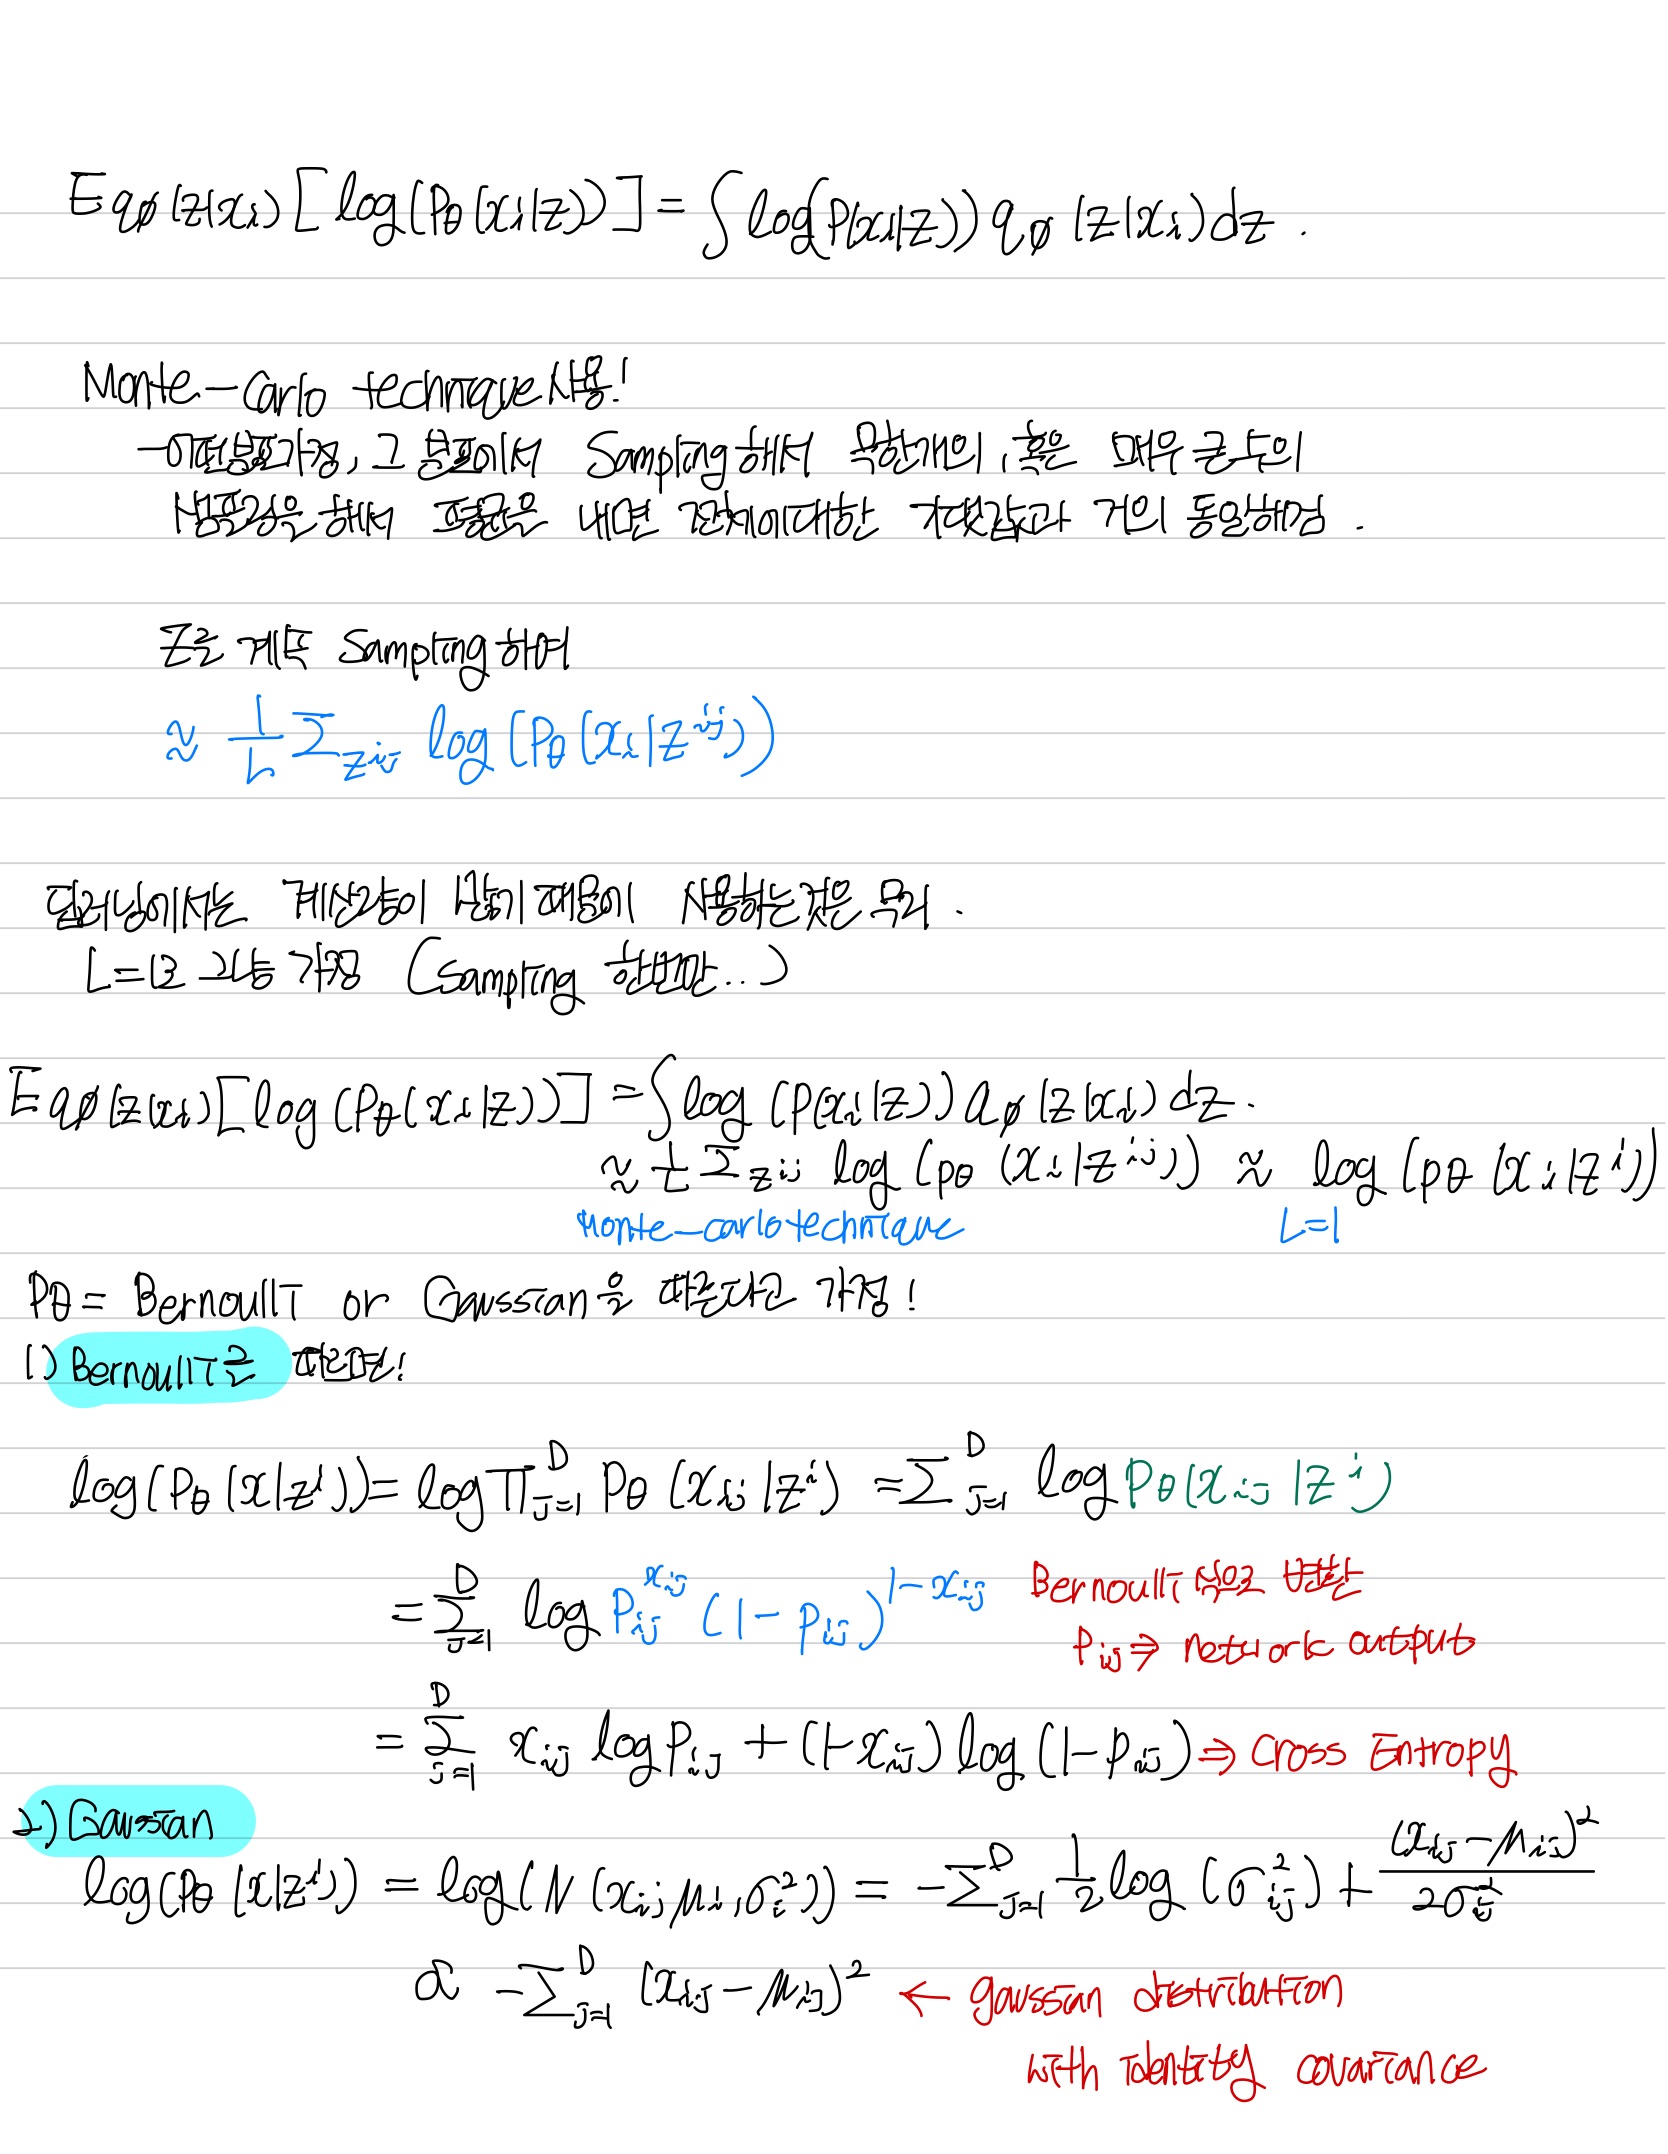 E qφ(z|xi) [log(Pθ(xi|z))] = ∫ log(P(xi|z)) qφ(z|xi) dz .
Monte-Carlo technique 사용!
-어떤분포가정, 그 분포에서 Sampling해서 무한개의, 혹은 매우 큰 수의
샘플링을 해서 평균을 내면 전체에대한 기댓값과 거의 동일해짐 .
Z를 계속 Sampling하여
≈ 1/L Σ z^ij log (Pθ (xi|z^ij))
딥러닝에서는 계산량이 많기 때문에 사용하는것은 무리 .
L=1로 그냥 가정 (Sampling 한번만...)
E qφ(z|xi) [log (Pθ(xi|z))] = ∫ log (P(xi|z)) qφ(z|xi) dz .
≈ 1/L Σ z^ij log (pθ (xi|z^ij)) ≈ log (pθ (xi|z^i))
Monte-carlo technique L=1
Pθ = Bernoulli or Gaussian을 따른다고 가정!
1) Bernoulli를 따르면!
log(Pθ(x|z^i)) = log Π_{j=1}^D Pθ (xij|z^i) = Σ_{j=1}^D log Pθ(xij|z^i)
= Σ_{j=1}^D log Pij^{xij} (1-Pij)^{1-xij} Bernoulli 식으로 변환
Pij ⇒ network output
= Σ_{j=1}^D xij log Pij + (1-xij) log (1-Pij) ⇒ Cross Entropy
2) Gaussian
log(Pθ(x|z^i)) = log(N(xi; μi, σi²)) = - Σ_{j=1}^D 1/2 log (σij²) + (xij-μij)² / 2σij²
∝ - Σ_{j=1}^D (xij-μij)² ← gaussian distribution
with identity covariance